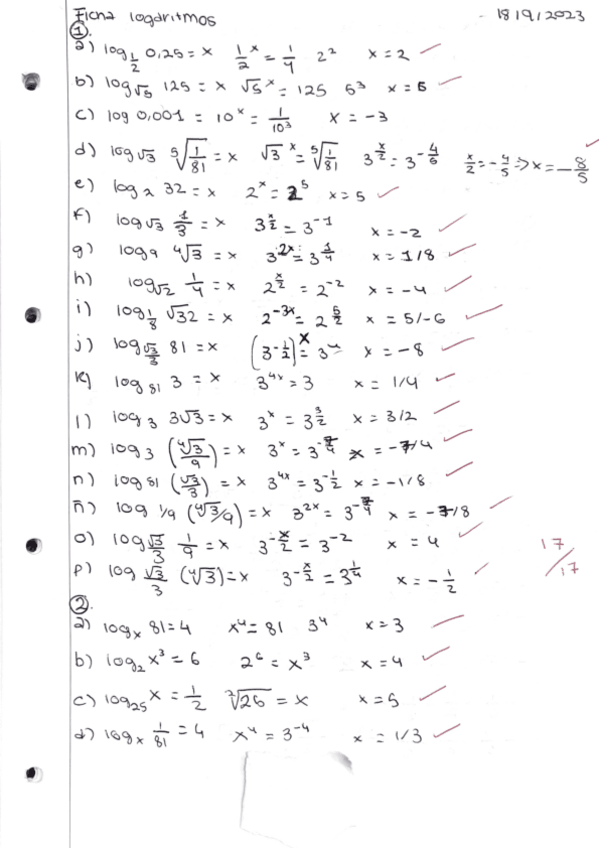 Ficha logaritmos - 18/9/2023
①.
a) log_{1/2} 0,25 = x (1/2)^x = 1/4 2² x = 2
b) log_{√5} 125 = x √5^x = 125 5³ x = 6
c) log 0,001 = 10^x = 1/10³ x = -3
d) log √3 ⁵√(1/81) = x √3^x = ⁵√(1/81) 3^{x/2} = 3^{-4/5} x/2 = -4/5 => x = -8/5
e) log₂ 32 = x 2^x = 2⁵ x = 5
f) log √3 1/3 = x 3^{x/2} = 3^{-1} x = -2
g) log₉ ⁴√3 = x 3^{2x} = 3^{1/4} x = 1/8
h) log_{√2} 1/4 = x 2^{x/2} = 2^{-2} x = -4
i) log_{1/8} √32 = x 2^{-3x} = 2^{5/2} x = 5/-6
j) log_{√3/3} 81 = x (3^{-1/2})^x = 3⁴ x = -8
k) log₈₁ 3 = x 3^{4x} = 3 x = 1/4
l) log₃ 3√3 = x 3^x = 3^{3/2} x = 3/2
m) log₃ (⁴√3/9) = x 3^x = 3^{-7/4} x = -7/4
n) log 81 (√3/3) = x 3^{4x} = 3^{-1/2} x = -1/8
ñ) log 1/9 (⁴√3/9) = x 3^{2x} = 3^{-7/4} x = -7/8
o) log √3/3 1/9 = x 3^{-x/2} = 3^{-2} x = 4
p) log √3/3 (⁴√3) = x 3^{-x/2} = 3^{1/4} x = -1/2
17/17
②.
a) log_x 81 = 4 x⁴ = 81 3⁴ x = 3
b) log₂ x³ = 6 2⁶ = x³ x = 4
c) log₂₅ x = 1/2 ²√25 = x x = 5
d) log_x 1/81 = 4 x⁴ = 3^{-4} x = 1/3